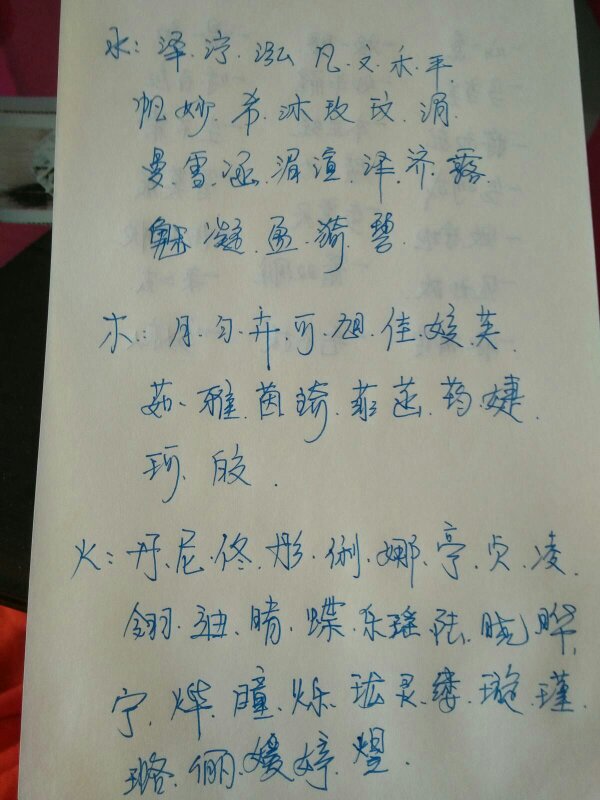 水：泽.泞.泓.凡.文.禾.平.
帆.妙.希.沐.玫.玟.涓.
曼.雪.涵.湄.渲.泽.济.露.
魅.凝.盈.漪.碧.
木：月.匀.卉.可.旭.佳.姣.芙.
茹.雅.茵.琦.菲.菡.筠.婕.
珂.皎.
火：丹.尼.佟.彤.俐.娜.亭.贞.凌.
翎.迪.晴.蝶.乐.瑶.陆.晓.晔.
宁.烨.瞳.烁.珑.灵.缕.璇.瑾.
璐.俪.媛.婷.煜.